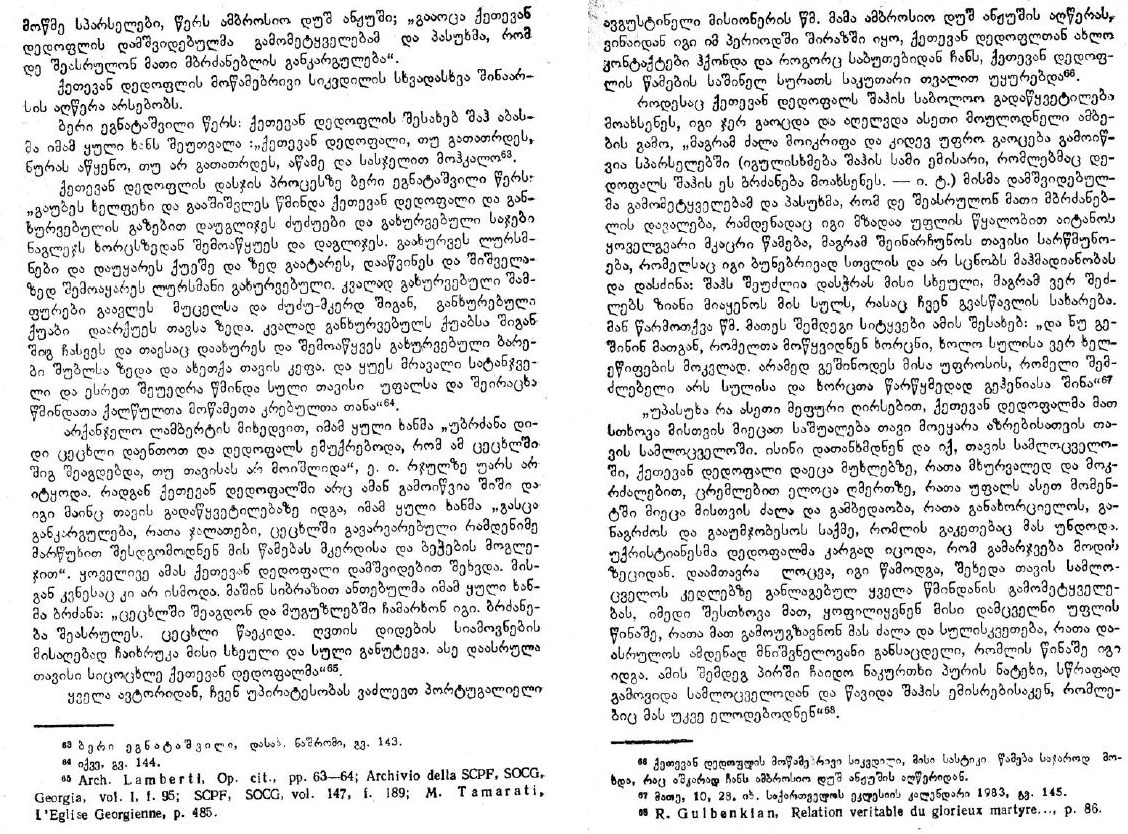 მოწმე სპარსელები, წერს ამბროსიო დუშ ანჟუში; „გააოცა ქეთევან
დედოფლის დამშვიდებულმა გამომეტყველებამ და პასუხმა, რომ
დე შეასრულონ მათი მბრძანებლის განკარგულება“.
ქეთევან დედოფლის მოწამებრივი სიკვდილის სხვადასხვა შინაარ-
სის აღწერა არსებობს.
ბერი ეგნატაშვილი წერს: ქეთევან დედოფლის შესახებ შაჰ აბას-
მა იმამ ყული ხანს შეუთვალა :„ქეთევან დედოფალი, თუ გათათრდეს,
ნურას აწყენო, თუ არ გათათრდეს, აწამე და სასჯელით მოჰკალო⁶³.
ქეთევან დედოფლის დასჯის პროცესზე ბერი ეგნატაშვილი წერს:
„გაუბეს ხელფეხი და გააშიშვლეს წმინდა ქეთევან დედოფალი და გან-
ხურვებულის გაზებით დაუგლიჯეს ძუძუები და გახურვებული საჯები
ნაგლეჯს ხორცსზედან შემოაწყუეს და დაგლიჯეს. გაახურვეს ლურსმ-
ნები და დაუყარეს ქუეშე და ზედ გაატარეს, დააწვინეს და შიშველა-
ზედ შემოაყარეს ლურსმანი გახურვებული. კვალად გახურვებული შამ-
ფურები გაავლეს მუცელსა და ძუძუ-მკერდ შიგან, განხურებული
ქუაბი დაარქუეს თავსა ზედა. კვალად განხურვებულს ქუაბსა შიგან
შიგ ჩასვეს და თავსაც დაახურეს და შემოაწყვეს გახურვებული ბარე-
ბი შუბლსა ზედა და ახეთქა თავის კეფა. და ყუეს მრავალი სატანჯვე-
ლი და ესრეთ შეუედრა წმინდა სული თავისი უფალსა და შეირაცხა
წმინდათა ქალწულთა მოწამეთა კრებულთა თანა“⁶⁴.
არქანჯელო ლამბერტის მიხედვით, იმამ ყული ხანმა „უბრძანა დი-
დი ცეცხლი დაენთოთ და დედოფალს ემუქრებოდა, რომ ამ ცეცხლში
შიგ შეაგდებდა, თუ თავისას არ მოიშლიდა“, ე. ი. რჯულზე უარს არ
იტყოდა. რადგან ქეთევან დედოფალში არც ამან გამოიწვია შიში და
იგი მაინც თავის გადაწყვეტილებაზე იდგა, იმამ ყული ხანმა „გასცა
განკარგულება, რათა ჯალათები, ცეცხლში გავარვარებული რამდენიმე
მარწუხით შესდგომოდნენ მის წამებას მკერდისა და ბეჭების მოგლე-
ჯით“. ყოველივე ამას ქეთევან დედოფალი დამშვიდებით შეხვდა. მის-
გან კვნესაც კი არ ისმოდა. მაშინ სიბრაზით ანთებულმა იმამ ყული ხან-
მა ბრძანა: „ცეცხლში შეაგდონ და მუგუზლებში ჩამარხონ იგი. ბრძანე-
ბა შეასრულეს. ცეცხლი წაეკიდა. ღვთის დიდების სიამოვნების
მისაღებად ჩაიხრუკა მისი სხეული და სული განუტევა. ასე დაასრულა
თავისი სიცოცხლე ქეთევან დედოფალმა“⁶⁵.
ყველა ავტორიდან, ჩვენ უპირატესობას ვაძლევთ პორტუგალიელი
⁶³ ბერი ეგნატაშვილი, დასახ. ნაშრომი, გვ. 143.
⁶⁴ იქვე, გვ. 144.
⁶⁵ Arch. Lamberti, Op. cit., pp. 63—64; Archivio della SCPF, SOCG,
Georgia, vol. I, f. 95; SCPF, SOCG, vol. 147, f. 189; M. Tamarati,
l'Eglise Georgienne, p. 485.
ავგუსტინელი მისიონერის წმ. მამა ამბროსიო დუშ ანჟუშის აღწერას,
ვინაიდან იგი იმ პერიოდში შირაზში იყო, ქეთევან დედოფლთან ახლო
კონტაქტები ჰქონდა და როგორც საბუთებიდან ჩანს, ქეთევან დედოფ-
ლის წამების საშინელ სურათს საკუთარი თვალით უყურებდა⁶⁶.
როდესაც ქეთევან დედოფალს შაჰის საბოლოო გადაწყვეტილება
მოახსენეს, იგი ჯერ გაოცდა და აღელვდა ასეთი მოულოდნელი ამბე-
ბის გამო, „მაგრამ ძალა მოიკრიფა და კიდევ უფრო გაოცება გამოიწ-
ვია სპარსელებში (იგულისხმება შაჰის სამი ემისარი, რომლებმაც დე-
დოფალს შაჰის ეს ბრძანება მოახსენეს. — ი. ტ.) მისმა დამშვიდებულ-
მა გამომეტყველებამ და პასუხმა, რომ დე შეასრულონ მათი მბრძანებ-
ლის დავალება, რამდენადაც იგი მზადაა უფლის წყალობით აიტანოს
ყოველგვარი მკაცრი წამება, მაგრამ შეინარჩუნოს თავისი სარწმუნო-
ება, რომელსაც იგი ბუნებრივად სთვლის და არ სცნობს მაჰმადიანობას
და დასძინა: შაჰს შეუძლია დასჭრას მისი სხეული, მაგრამ ვერ შეძ-
ლებს ზიანი მიაყენოს მის სულს, რასაც ჩვენ გვასწავლის სახარება.
მან წარმოთქვა წმ. მათეს შემდეგი სიტყვები ამის შესახებ: „და ნუ გე-
შინინ მათგან, რომელთა მოწყვიდნენ ხორცნი, ხოლო სულისა ვერ ხელ-
ეწიფების მოკვლად. არამედ გეშინოდეს მისა უფროს, რომელი შემ-
ძლებელი არს სულისა და ხორცთა წარწყმედად გეჰენიასა შინა“⁶⁷
„უპასუხა რა ასეთი მეფური ღირსებით, ქეთევან დედოფალმა მათ
სთხოვა მისთვის მიეცათ საშუალება თავი მოეყარა აზრებისათვის თა-
ვის სამლოცველოში. ისინი დათანხმდნენ და იქ, თავის სამლოცველო-
ში, ქეთევან დედოფალი დაეცა მუხლებზე, რათა მხურვალედ და მოკ-
რძალებით, ცრემლებით ელოცა ღმერთზე, რათა უფალს ასეთ მომენ-
ტში მიეცა მისთვის ძალა და გამბედაობა, რათა განახორციელოს, გა-
ნაგრძოს და გააუმჯობესოს საქმე, რომლის გაკეთებაც მას უნდოდა.
უქრისტიანესმა დედოფალმა კარგად იცოდა, რომ გამარჯვება მოდის
ზეციდან. დაამთავრა ლოცვა, იგი წამოდგა, შეხედა თავის სამლო-
ცველოს კედლებზე განლაგებულ ყველა წმინდანის გამომეტყველე-
ბას, იმედი შესთხოვა მათ, ყოფილიყენენ მისი დამცველნი უფლის
წინაშე, რათა მათ გამოუგზავნონ მას ძალა და სულისკვეთება, რათა და-
ასრულოს ამდენად მნიშვნელოვანი განსაცდელი, რომლის წინაშე იგი
იდგა. ამის შემდეგ პირში ჩაიდო ნაკურთხი პურის ნატეხი, სწრაფად
გამოვიდა სამლოცველოდან და წავიდა შაჰის ემისრებისაკენ, რომლე-
ბიც მას უკვე ელოდებოდნენ“⁶⁸.
⁶⁶ ქეთევან დედოფლის მოწამებრივი სიკვდილი, მისი სასტიკი წამება საჯაროდ მო-
ხდა, რაც აშკარად ჩანს ამბროსიო დუშ ანჟუშის აღწერიდან.
⁶⁷ მათე, 10, 28. იხ. საქართველოს ეკლესიის კალენდარი 1983, გვ. 145.
⁶⁸ R. Gulbenkian, Relation veritable du glorieux martyre..., p. 86.